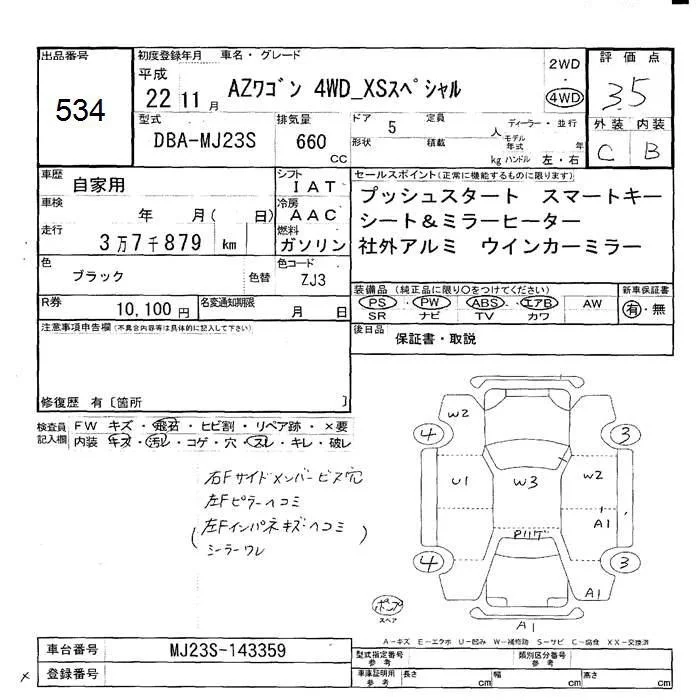 出品番号 初度登録年月 車名・グレード 評価点
534
平成 22 11月 AZワゴン 4WD_XSスペシャル 2WD 4WD 3.5
型式 排気量 ドア 定員 ディーラー・並行 外装 内装
DBA-MJ23S 660 CC 5 人 形状 積載 kg モデル年式 年 ハンドル 左・右 C B
車歴 自家用 シフト IAT セールスポイント(正常に機能するものに限ります)
車検 年 月( 日) 冷房 AAC プッシュスタート スマートキー
シート&ミラーヒーター
走行 3万7千879 km 燃料 ガソリン 社外アルミ ウインカーミラー
色 ブラック 色替 色コード ZJ3
装備品(純正品に限り○をつけてください) 新車保証書
PS・PW・ABS・エアB AW 有・無
SR ナビ TV カワ
R券 10,100円 名変通知期限 月 日
注意事項申告欄(不具合内容等は具体的に記入して下さい) 後日品 保証書・取説
修復歴 有〔箇所 〕
検査員記入欄 FW キズ・飛石・ヒビ割・リペア跡・×要
内装・キズ・汚レ・コゲ・穴・スレ・キレ・破レ
右Fサイドメンバービス穴
左Fピラーヘコミ
(左Fインパネキズ・ヘコミ)
シーラーワレ
W2
4 3
U1 W3 W2
A1
P117"
4 3
A1
ポンプ
スペア
A1
A-キズ E-エクボ U-凹み W-補修跡 S-サビ C-腐食 XX-交換済
車台番号 MJ23S-143359 型式指定番号 参考 類別区分番号 参考
× 登録番号 車庫証明用 参考 長さ cm 幅 cm 高さ cm